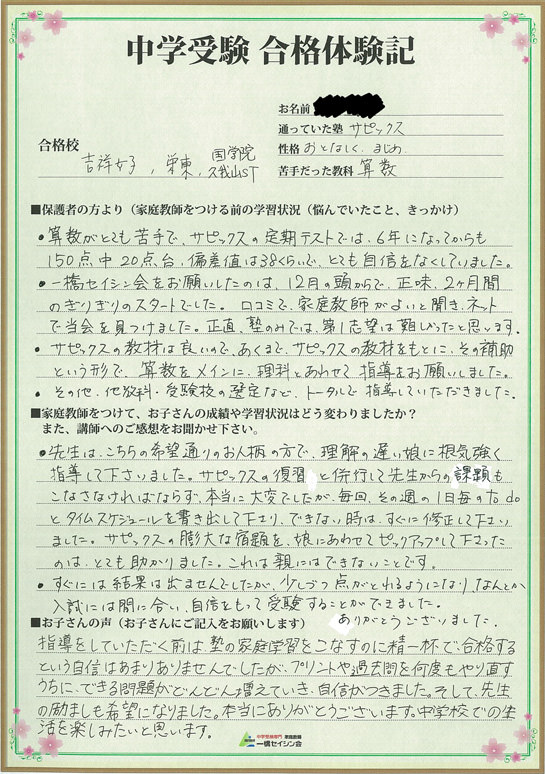 中学受験 合格体験記
お名前
通っていた塾 サピックス
性格 おとなしく、まじめ
苦手だった教科 算数
合格校
吉祥女子、栄東、国学院久我山ST
■保護者の方より（家庭教師をつける前の学習状況（悩んでいたこと、きっかけ）
●算数がとても苦手で、サピックスの定期テストでは、6年になってからも
150点中20点台、偏差値は38くらいで、とても自信をなくしていました。
●一橋セイシン会をお願いしたのは、12月の頭からで、正味、2ヶ月間
のぎりぎりのスタートでした。口コミで、家庭教師がよいと聞き、ネット
で当会を見つけました。正直、塾のみでは、第1志望は難しかったと思います。
●サピックスの教材は良いので、あくまで、サピックスの教材をもとに、その補助
という形で、算数をメインに、理科とあわせて指導をお願いしました。
●その他、他教科・受験校の選定など、トータルで指導していただきました。
■家庭教師をつけて、お子さんの成績や学習状況はどう変わりましたか？
また、講師へのご感想をお聞かせ下さい。
●先生は、こちらの希望通りのお人柄の方で、理解の遅い娘に根気強く
指導して下さいました。サピックスの復習と併行して先生からの課題も
こなさなければならず、本当に大変でしたが、毎回、その週の1日毎のto do
とタイムスケジュールを書き出して下さり、できない時は、すぐに修正して下さい
ました。サピックスの膨大な宿題を、娘にあわせてピックアップして下さった
のは、とても助かりました。これは親にはできないことです。
●すぐには結果は出ませんでしたが、少しづつ点がとれるようになり、なんとか
入試には間に合い、自信をもって受験することができました。
ありがとうございました。
■お子さんの声（お子さんにご記入をお願いします）
指導をしていただく前は、塾の家庭学習をこなすのに精一杯で、合格する
という自信はあまりありませんでしたが、プリントや過去問を何度もやり直す
うちに、できる問題がどんどん増えていき、自信がつきました。そして、先生
の励ましも希望になりました。本当にありがとうございます。中学校での生
活を楽しみたいと思います。
中学受験専門 家庭教師
一橋セイシン会